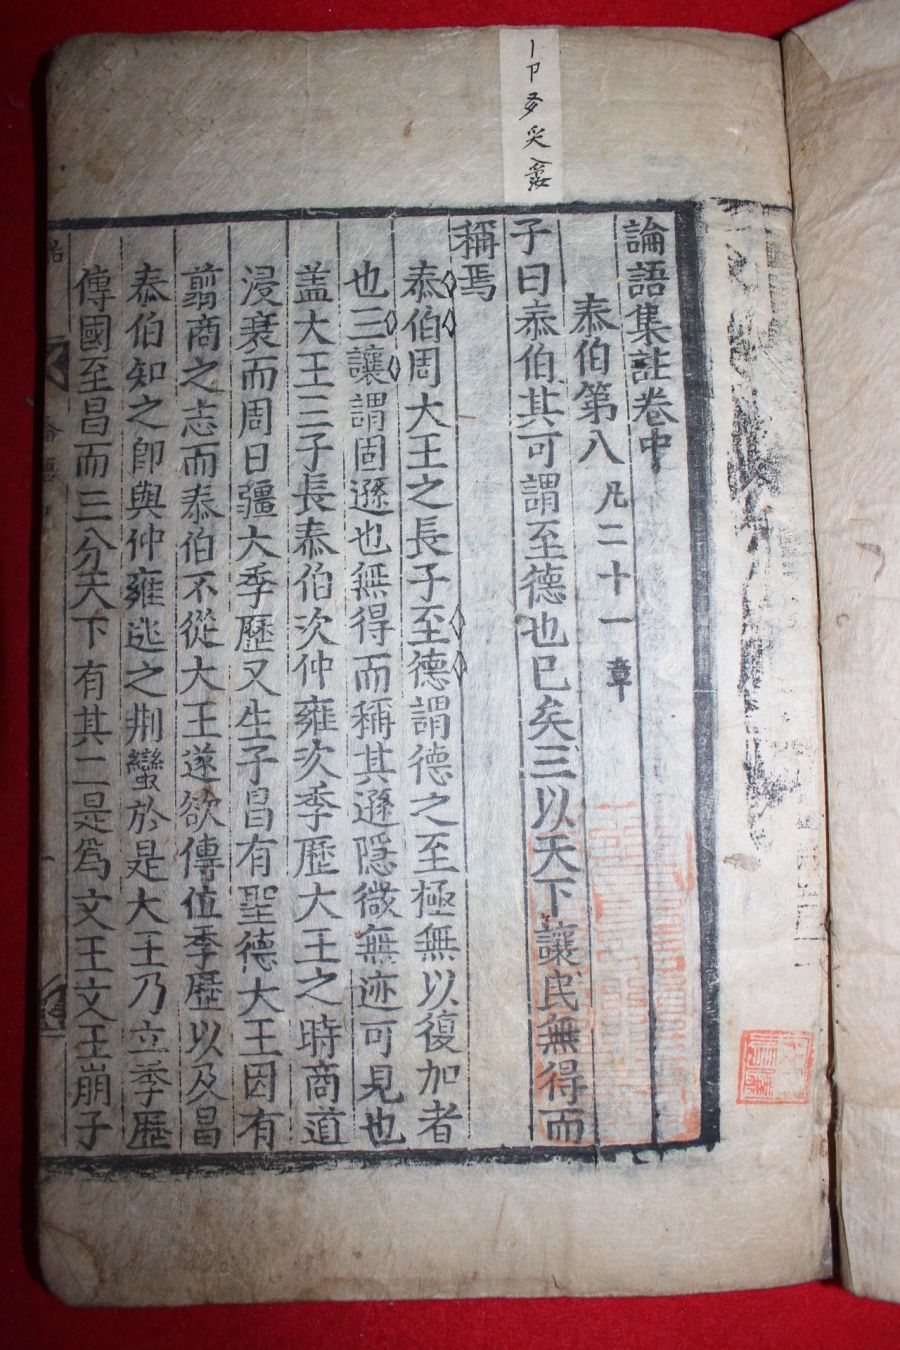 論語集註卷中
泰伯第八 凡二十一章
子曰泰伯其可謂至德也已矣三以天下讓民無得而
稱焉
泰伯周大王之長子至德謂德之至極無以復加者
也三讓謂固遜也無得而稱其遜隱微無迹可見也
盖大王三子長泰伯次仲雍次季歷大王之時商道
浸衰而周日彊大季歷又生子昌有聖德大王因有
翦商之志而泰伯不從大王遂欲傳位季歷以及昌
泰伯知之卽與仲雍逃之荆蠻於是大王乃立季歷
傳國至昌而三分天下有其二是爲文王文王崩子